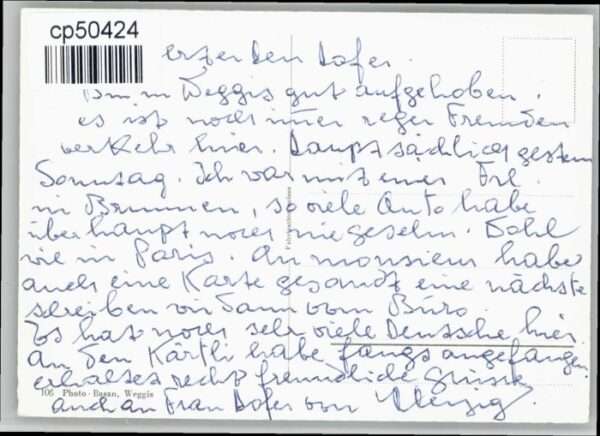 cp50424
werter Herr Hofer.
Bin in Weggis gut aufgehoben.
es ist noch immer reger Fremden
verkehr hier. Hauptsächlich gestern
Sonntag. Ich war mit einer Frl.
in Brunnen, so viele Auto habe
überhaupt noch nie gesehn.
wie in Paris. An monsieur habe
auch eine Karte gesandt eine nächste
schreiben wir dann vom Büro.
Es hat noch sehr viele Deutsche hier
An den Kärtli habe angefangen
recht freundliche Grüsse
106 Photo-Basan, Weggis
auch an Frau Hofer von